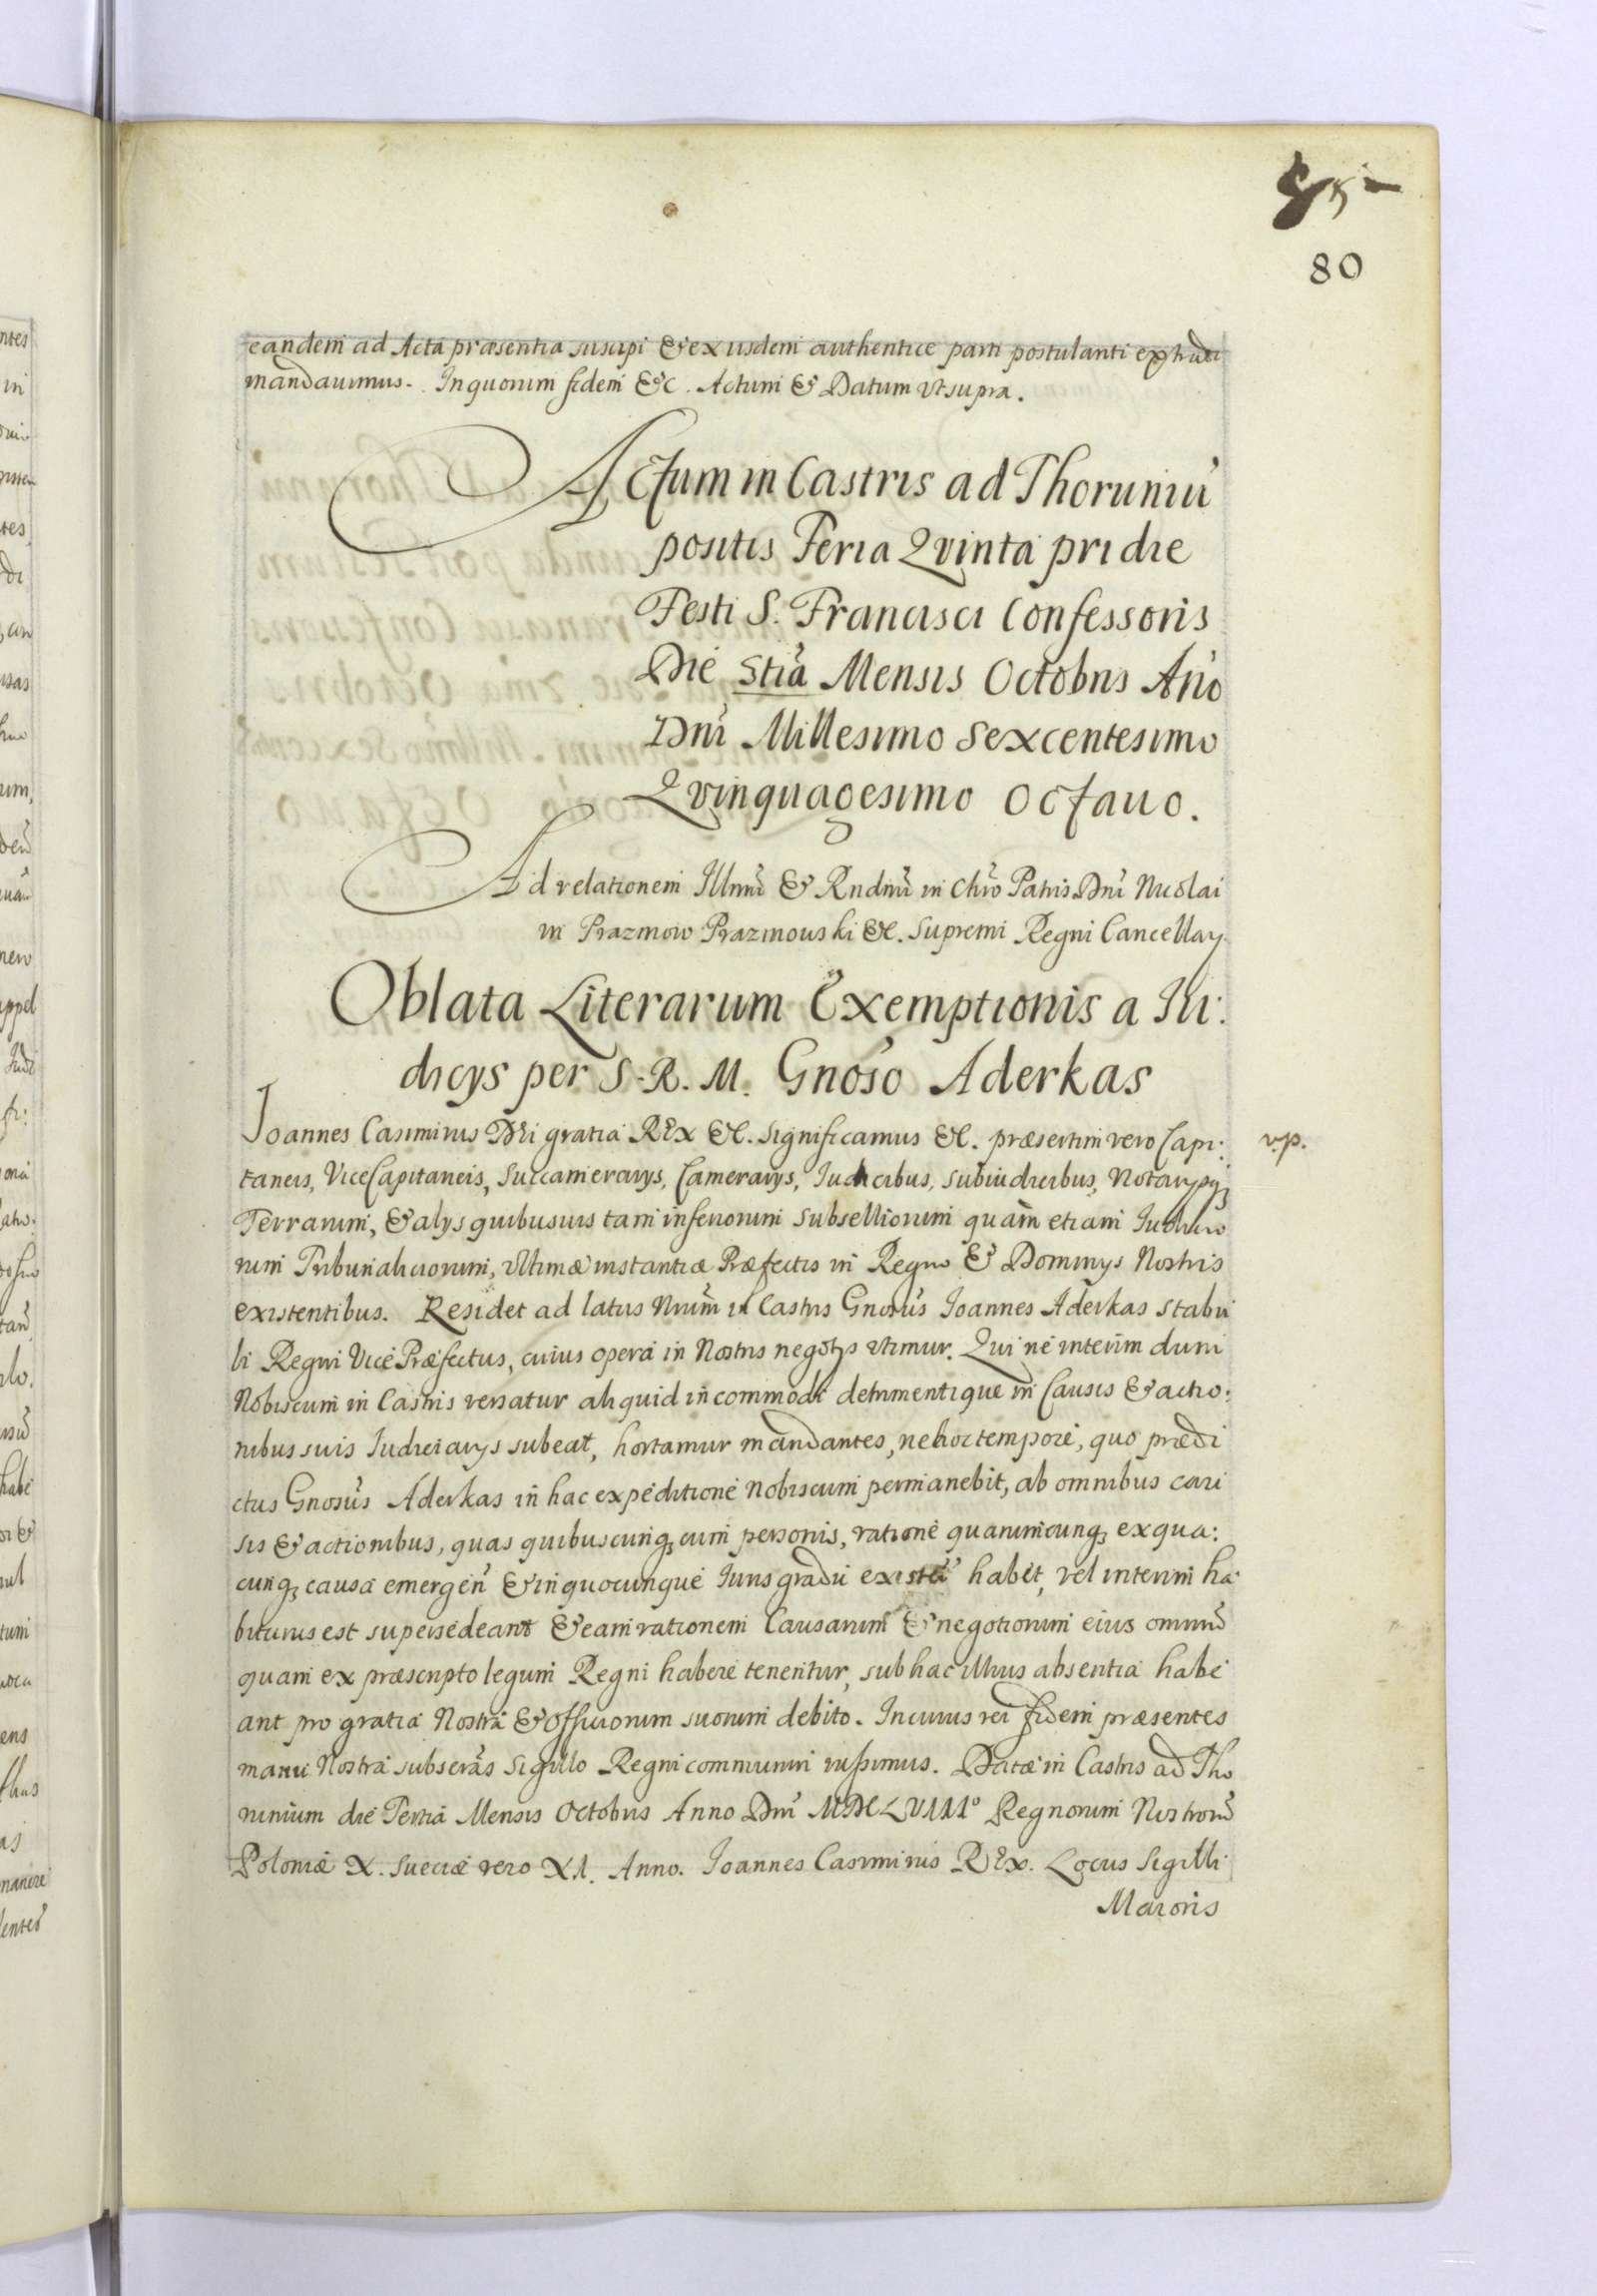 80
eandem ad Acta præsentia suscipi & ex ijsdem authentice parti postulanti extradi
mandauimus. In quorum fidem &c. Actum & Datum vt supra.
Actum in Castris ad Thoruniũ
positis Feria Qvinta pridie
Festi S. Francisci Confessoris
Die 3tia Mensis Octobris Ano
Dni Millesimo Sexcentesimo
Qvinquagesimo Octauo.
Ad relationem Illmi & Rndmi in Chro Patris Dni Nicolai
in Prazmow Prazmouski &c. Supremi Regni Cancellary
Oblata Literarum Exemptionis a Iu:
dicys per S. R. M. Gnoso Aderkas
Ioannes Casimirus Dei gratia Rex &c. Significamus &c. præsertim vero Capi: v.p.
taneis, ViceCapitaneis, Succamerarys, Camerarys, Iudicibus, subiudicibus, Notarysq3
Terrarum, & alys quibusuis tam inferiorum Subselliorum quam etiam Iudicio
rum Tribunalitiorum, vltimæ instantiæ Præfectis in Regno & Dominys Nostris
existentibus. Residet ad latus Nrum in Castris Gnosus Ioannes Aderkas stabu
li Regni Vice Præfectus, cuius opera in Nostris negotys vtimur. Qui ne interim dum
Nobiscum in Castris versatur aliquid incommodi detrimentique in Causis & actio:
nibus suis Iudiciarys subeat, hortamur mandantes, ne hoc tempore, quo prædi
ctus Gnosus Aderkas in hac expeditione Nobiscum permanebit, ab omnibus cau
sis & actionibus, quas quibuscunq3 cum personis, ratione quarumcunq3 ex qua:
cunq3 causa emergen & in quocunque Iuris gradu existen habet, vel interim ha
biturus est supersedeant & eam rationem Causarum & negotiorum eius omniũ
quam ex præscripto legum Regni habere tenentur, sub hac illius absentia habe
ant pro gratia Nostra & officiorum suorum debito. In cuius rei fidem præsentes
manu Nostra subscrās Sigillo Regni communiri iussimus. Datæ in Castris ad Tho
runium die Tertia Mensis Octobris Anno Dni MDCLVIIIo Regnorum Nostrorũ
Poloniæ X. Sueciæ vero XI. Anno. Ioannes Casimirus Rex. Locus Sigilli
Maioris